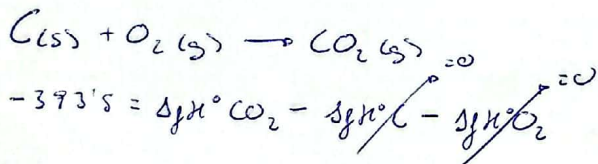 C(s) + O₂(g) → CO₂(g)
-393'5 = ΔfH° CO₂ - ΔfH°C - ΔfH°O₂ =0 =0